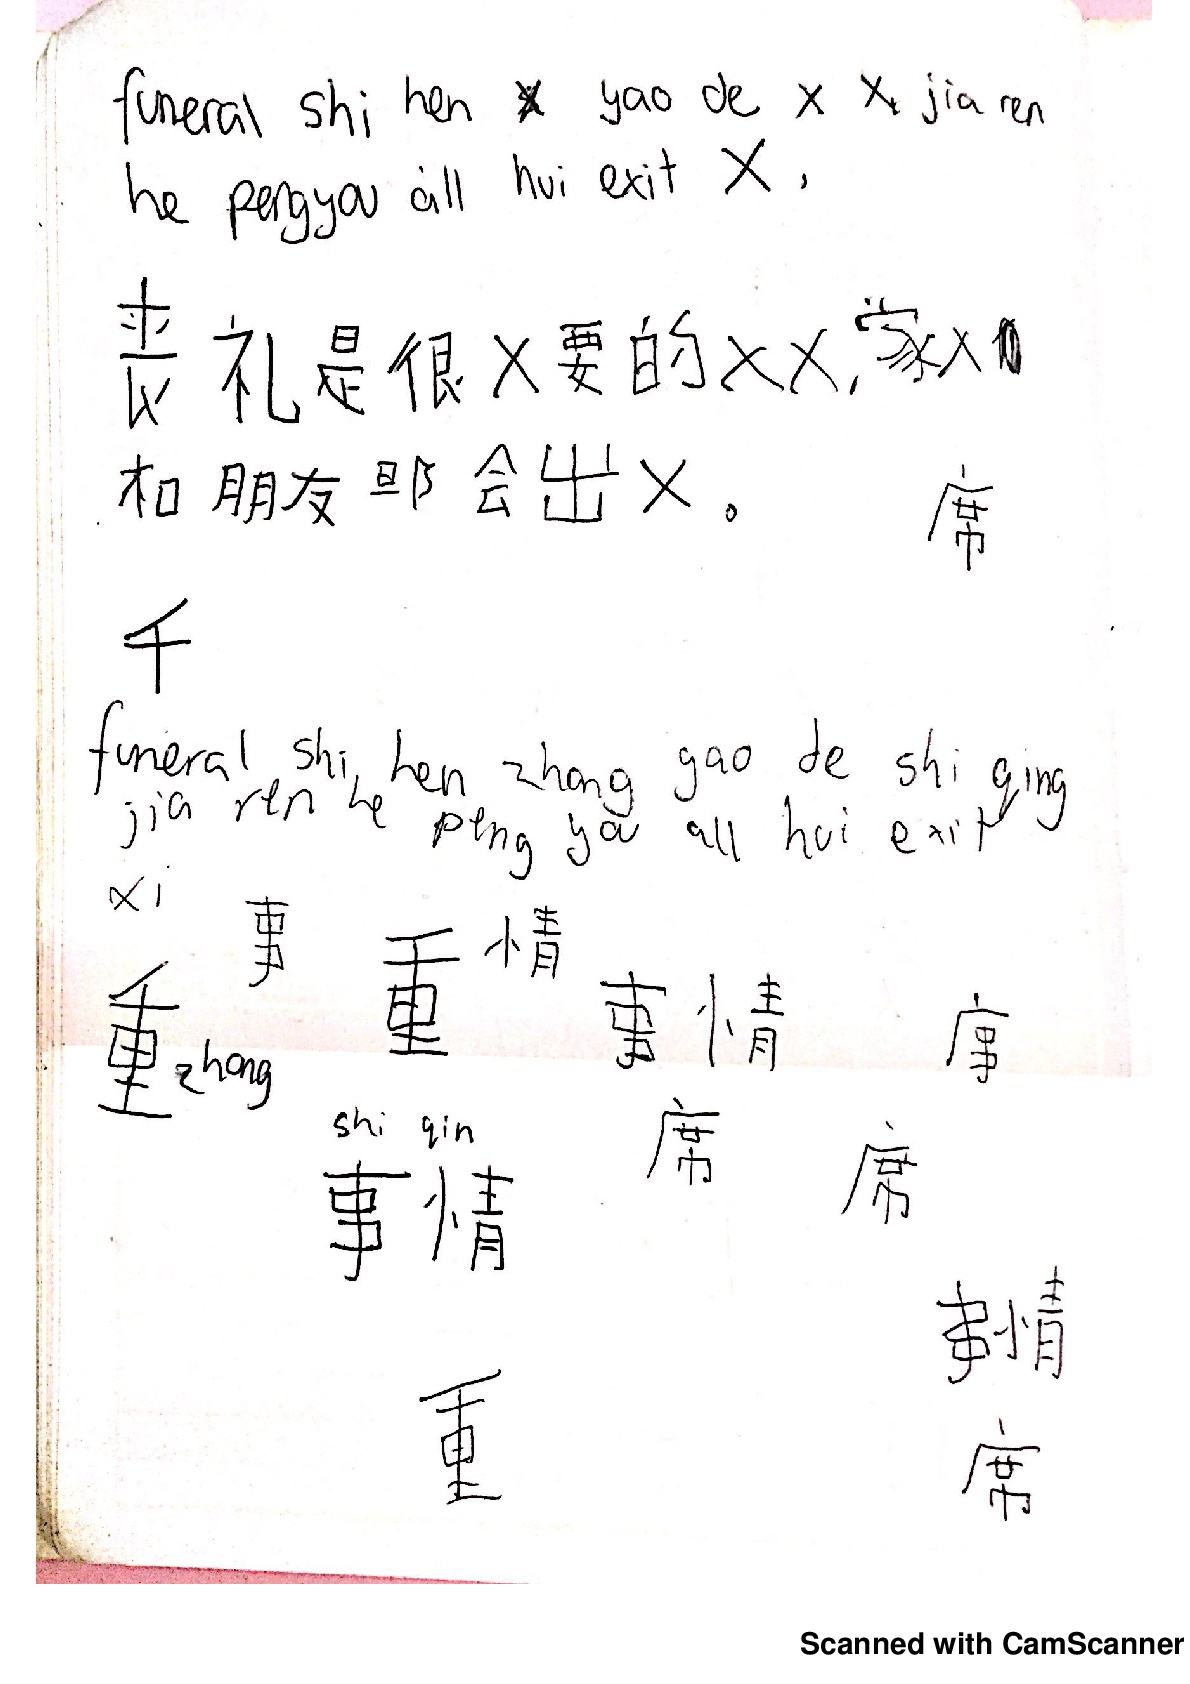 funeral shi hen x yao de x x, jia ren
he pengyou all hui exit X,
丧礼是很X要的XX,家X
和朋友都会出X。
席
千
funeral shi hen zhong yao de shi qing
jia ren he peng you all hui exit
xi
事 重 情
重 zhong 事情 序
shi qin 席 席
事情
事情
重 席
Scanned with CamScanner